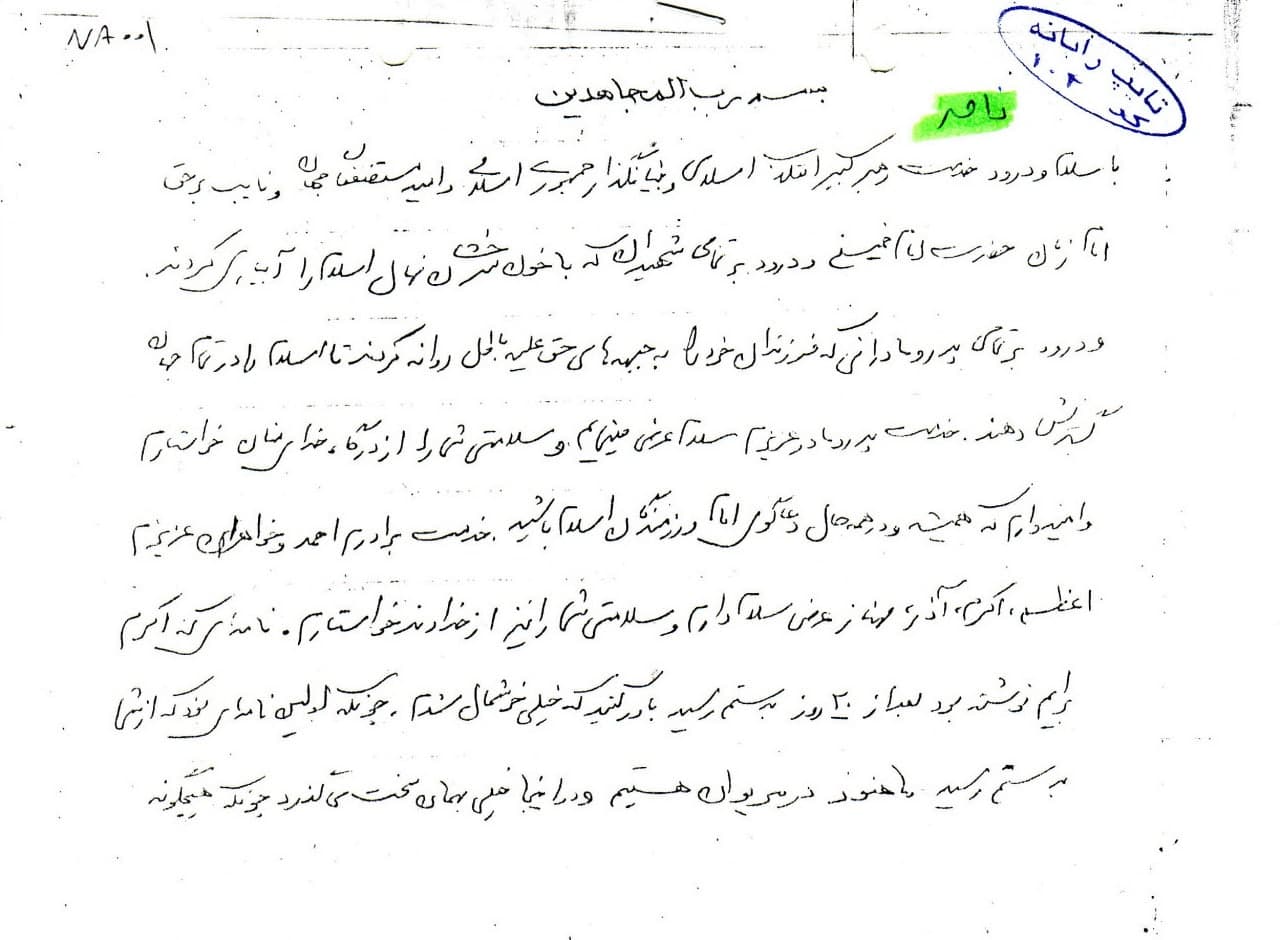 N8001
تایپ رایانه
کد ۱۰۲
بسمه رب المجاهدین
نامه
با سلام و درود خدمت رهبر کبیر انقلاب اسلامی و بنیانگذار جمهوری اسلامی و امید مستضعفان جهان و نایب برحق
امام زمان حضرت امام خمینی و درود بر تمامی شهیدان که با خون سرخشان نهال اسلام را آبیاری کردند.
و درود بر تمامی پدر و مادرانی که فرزندان خود را به جبهه های حق علیه باطل روانه کردند تا اسلام را در تمام جهان
گسترش دهند. خدمت پدر و مادر عزیزم سلام عرض مینمایم و سلامتی شما را از درگاه خدای منان خواستارم
و امیدوارم که همیشه و در همه حال دعاگوی امام و رزمندگان اسلام باشید. خدمت برادرم احمد و خواهران عزیزم
اعظم، اکرم، آذر، مهناز عرض سلام دارم و سلامتی شما را نیز از خداوند خواستارم. نامه ای که اکرم
برایم نوشته بود بعد از ۲۰ روز بدستم رسید باور کنید که خیلی خوشحال شدم. چونکه اولین نامه ای بود که از شما
بدستم رسید ما هنوز در مریوان هستیم و در اینجا خیلی بهمان سخت می گذرد چونکه هیچگونه